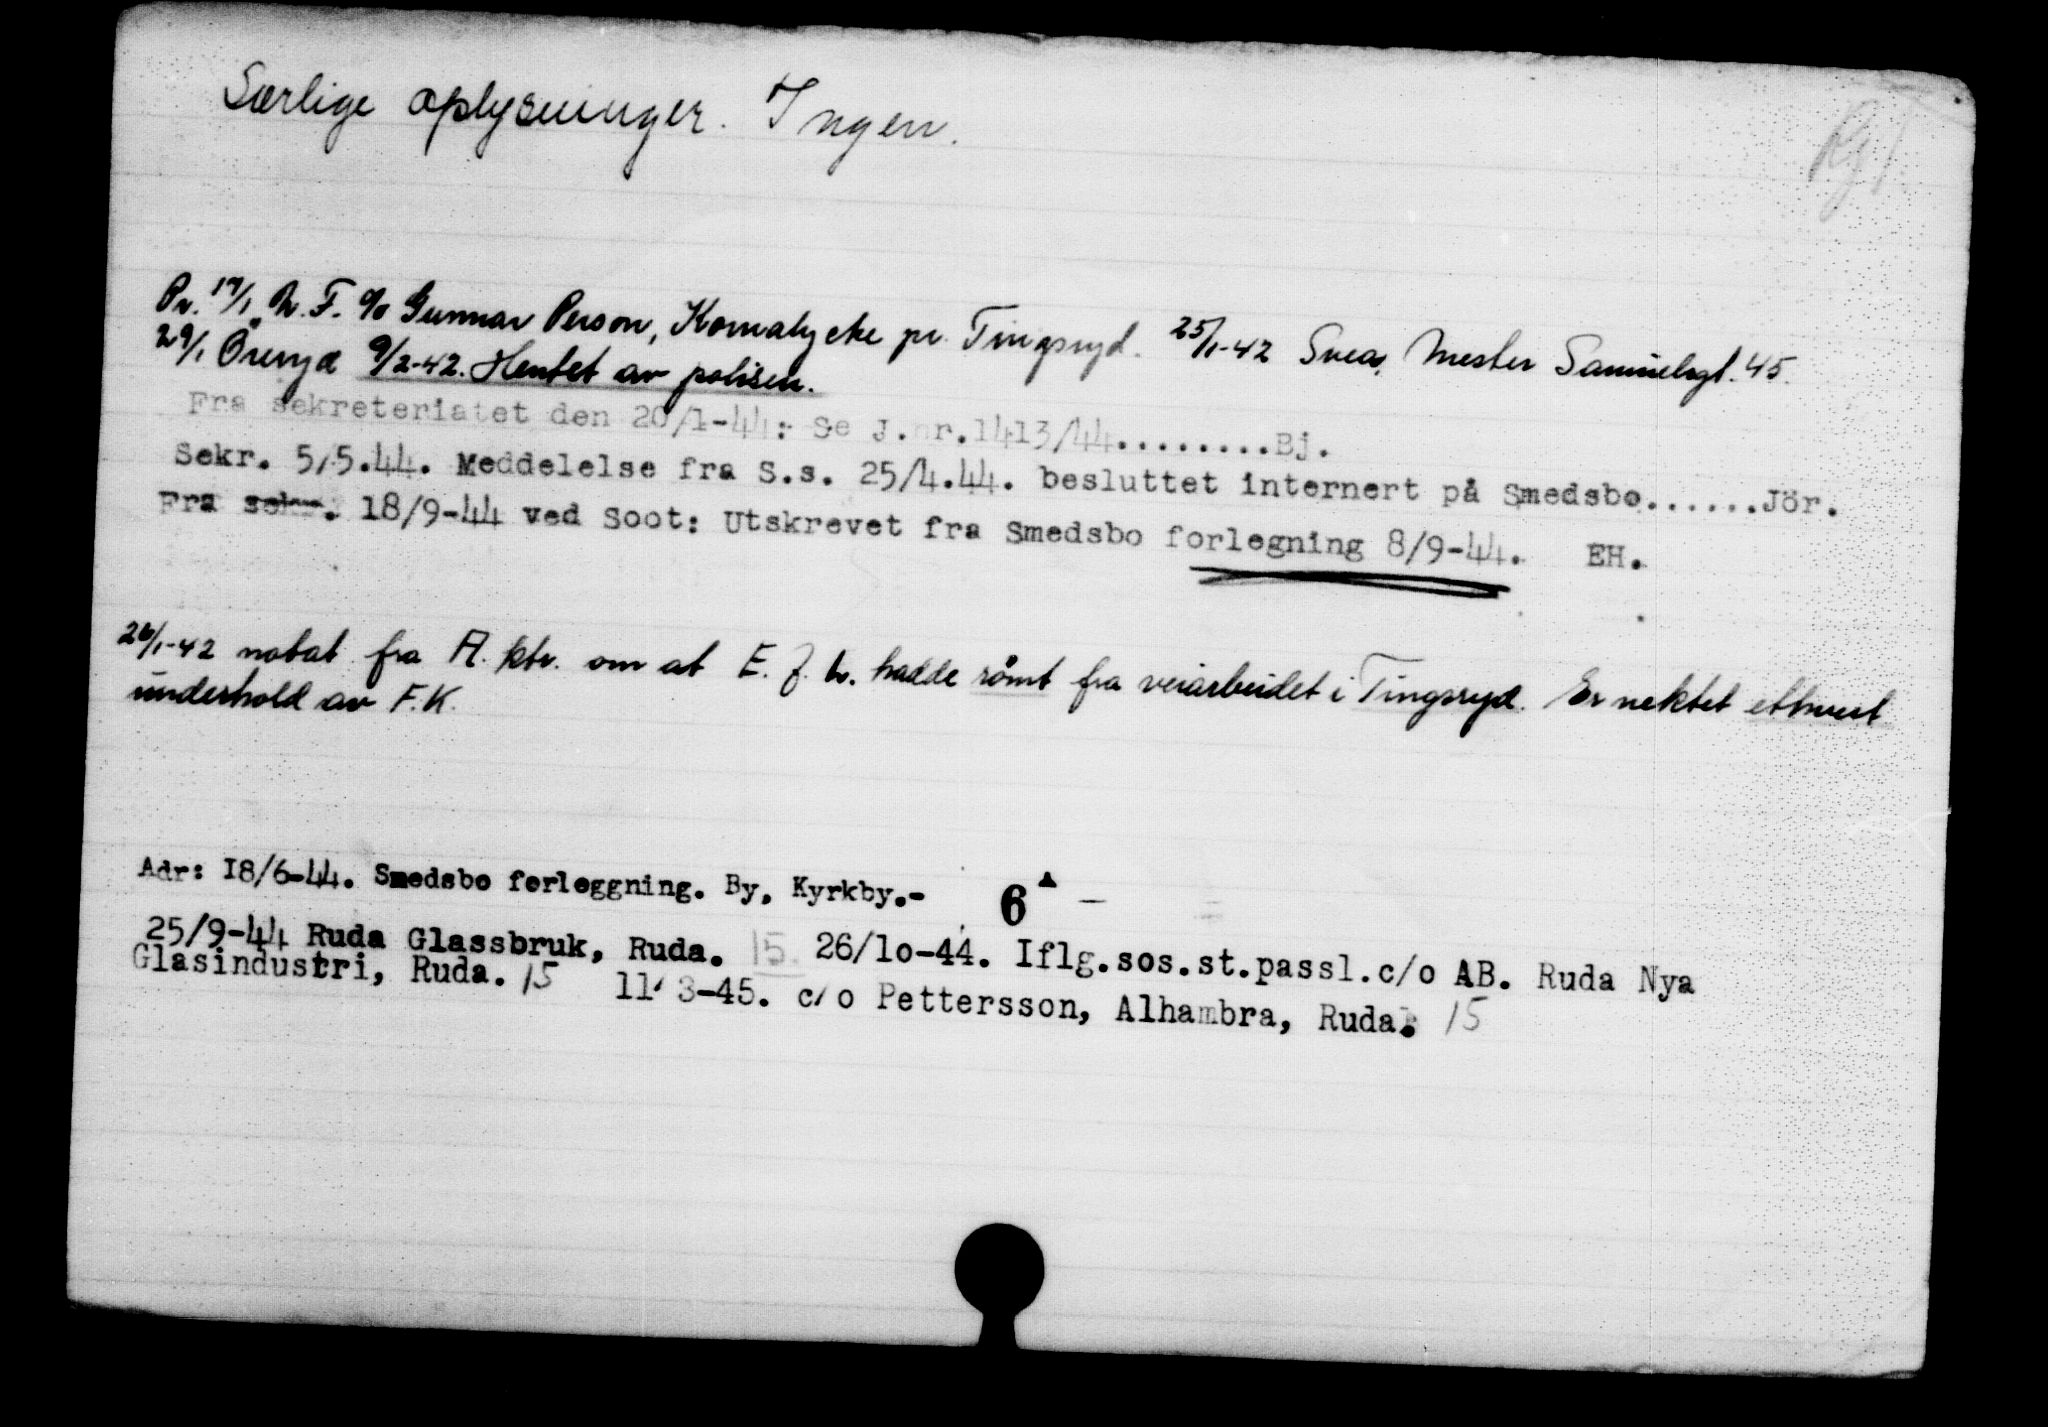 Særlige oplysninger. Ingen.
Pr. 17/1 N. F. c/o Gunnar Person, Komalycke pr. Tingsryd. 25/1-42 Svea, Mester Samuelsgt. 45.
29/1 Öreryd 9/2-42. Hentet av polisen.
Fra sekreteriatet den 20/1-44: Se J.nr.1413/44........Bj.
Sekr. 5/5.44. Meddelelse fra S.s. 25/4.44. besluttet internert på Smedsbo......Jör.
Fra sekr. 18/9-44 ved Soot: Utskrevet fra Smedsbo forlegning 8/9-44. EH.
26/1-42 notat fra A. ktr. om at E. f. b. hadde römt fra veiarbeidet i Tingsryd. Er nektet ethvert
underhold av F.K.
Adr: 18/6-44. Smedsbo forleggning. By, Kyrkby.- 6 -
25/9-44 Ruda Glassbruk, Ruda. 15 26/1o-44. Iflg.sos.st.passl.c/o AB. Ruda Nya
Glasindustri, Ruda. 15 11/3-45. c/o Pettersson, Alhambra, Ruda. 15